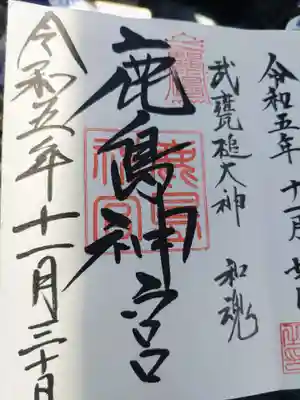 令和五年 十一月
武甕槌大神 和魂
鹿島神宮
令和五年十一月三十日